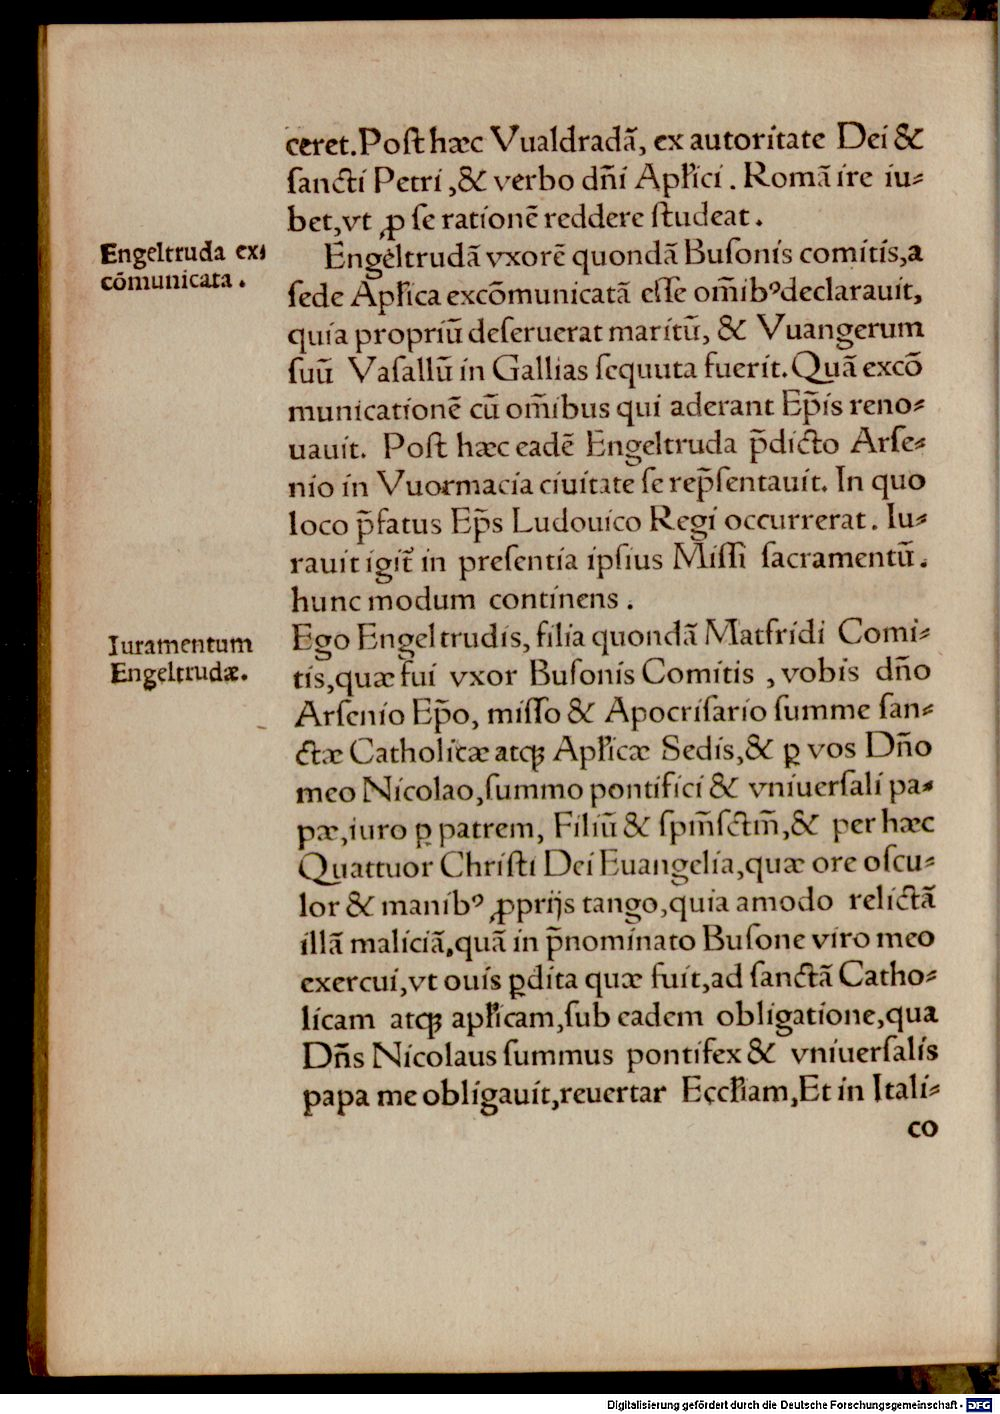 ceret. Poſt hæc Vualdradā, ex autoritate Dei &
ſancti Petri, & verbo dn̄i Apl̄ici. Romā ire iu⸗
bet, vt ꝓ ſe rationē reddere ſtudeat.
Engeltruda ex⸗
cōmunicata.
Engeltrudā vxorē quondā Buſonis comitis, a
ſede Apl̄ica excōmunicatā eſſe om̄ibꝰ declarauit,
quia propriū deſeruerat maritū, & Vuangerum
ſuū Vaſallū in Gallias ſequuta fuerit. Quā excō
municationē cū om̄ibus qui aderant Ep̄is reno⸗
uauit. Poſt hæc eadē Engeltruda p̄dicto Arſe⸗
nio in Vuormacia ciuitate ſe rep̄ſentauit. In quo
loco p̄fatus Ep̄s Ludouico Regi occurrerat. Iu⸗
rauit igit̄ in preſentia ipſius Miſſi ſacramentū.
hunc modum continens.
Iuramentum
Engeltrudæ.
Ego Engeltrudis, filia quondā Matfridi Comi⸗
tis, quæ fui vxor Buſonis Comitis, vobis dn̄o
Arſenio Ep̄o, miſſo & Apocriſario ſumme ſan⸗
ctæ Catholicæ atqꝫ Apl̄icæ Sedis, & ꝑ vos Dn̄o
meo Nicolao, ſummo pontifici & vniuerſali pa⸗
pæ, iuro ꝑ patrem, Filiū & ſpm̄ſctm̄, & per hæc
Quattuor Chriſti Dei Euangelia, quæ ore oſcu⸗
lor & manibꝰ ꝓprijs tango, quia amodo relictā
illā maliciā, quā in p̄nominato Buſone viro meo
exercui, vt ouis ꝑdita quæ fuit, ad ſanctā Catho⸗
licam atqꝫ apl̄icam, ſub eadem obligatione, qua
Dn̄s Nicolaus ſummus pontifex & vniuerſalis
papa me obligauit, reuertar Eccl̄iam, Et in Itali⸗
co
Digitalisierung gefördert durch die Deutsche Forschungsgemeinschaft - DFG